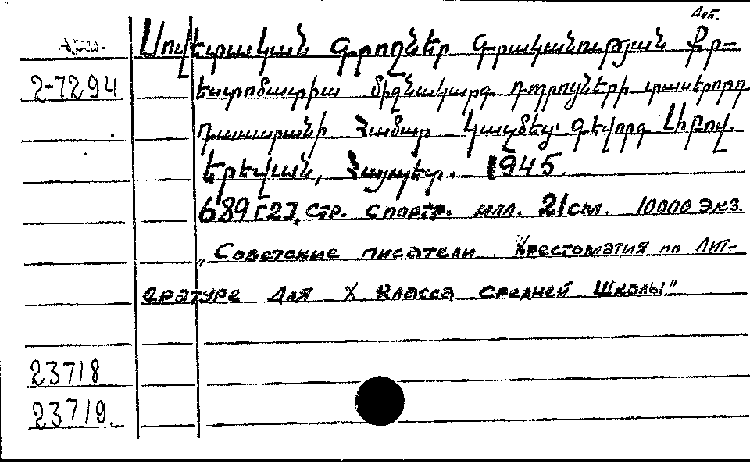 Սովետական գրողներ գրականության քր-
2-7294 եստոմատիա միջնակարգ դպրոցների տասերորդ
դասարանի համար կազմեց՝ Գեվորգ
Երեվան, Հայպետ. 1945.
689 [2] стр. с портр. илл. 21см. 10000 экз.
„Советские писатели Хрестоматия по лит-
ературе для X класса средней школы"
23718
23719.